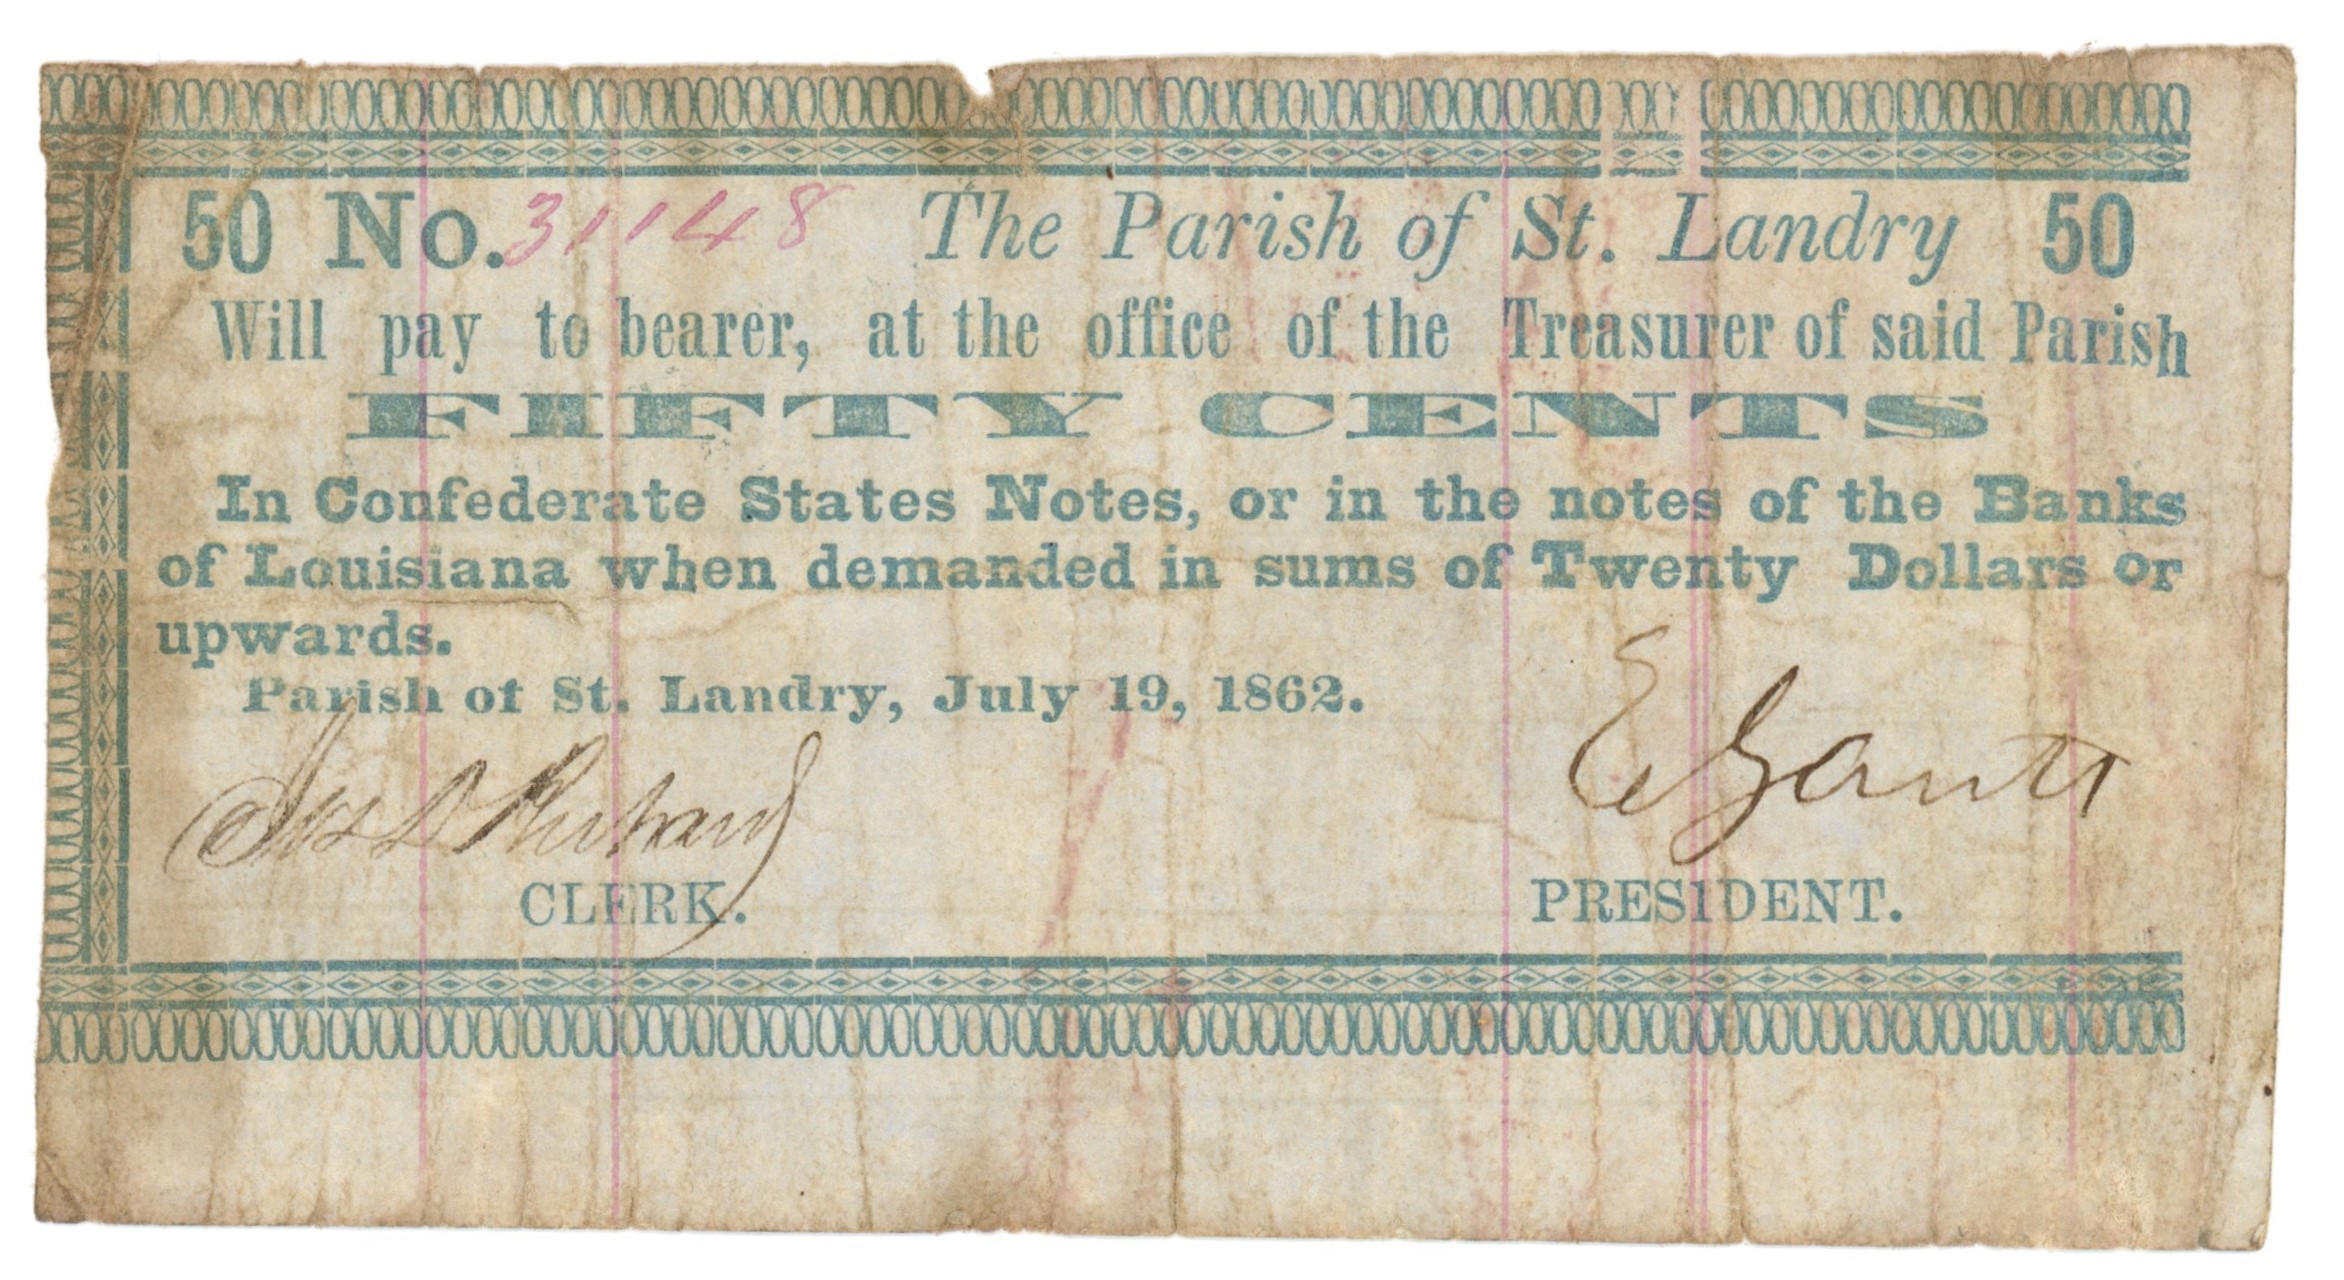 50 No. 31148 The Parish of St. Landry 50
Will pay to bearer, at the office of the Treasurer of said Parish
FIFTY CENTS
In Confederate States Notes, or in the notes of the Banks
of Louisiana when demanded in sums of Twenty Dollars or
upwards.
Parish of St. Landry, July 19, 1862.
E Gantt
CLERK. PRESIDENT.